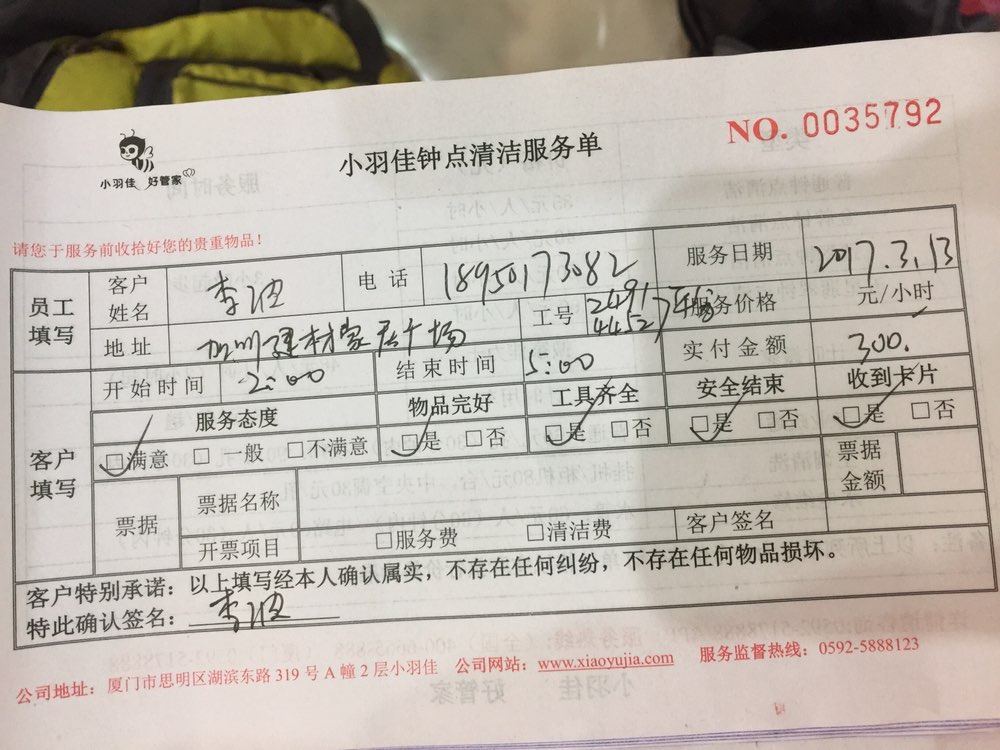 NO. 0035792
小羽佳 好管家
小羽佳钟点清洁服务单
请您于服务前收拾好您的贵重物品！
员工填写 客户姓名 李波 电话 18950173082 服务日期 2017.3.13
地址 加州建材家居广场 工号 2491 4452 服务价格 元/小时
开始时间 2:00 结束时间 5:00 实付金额 300.
客户填写 服务态度 物品完好 工具齐全 安全结束 收到卡片
□满意 □一般 □不满意 □是 □否 □是 □否 □是 □否 □是 □否
票据 票据名称 票据金额
开票项目 □服务费 □清洁费 客户签名
客户特别承诺：以上填写经本人确认属实，不存在任何纠纷，不存在任何物品损坏。
特此确认签名：李波
公司地址：厦门市思明区湖滨东路 319 号 A 幢 2 层小羽佳 公司网站：www.xiaoyujia.com 服务监督热线：0592-5888123